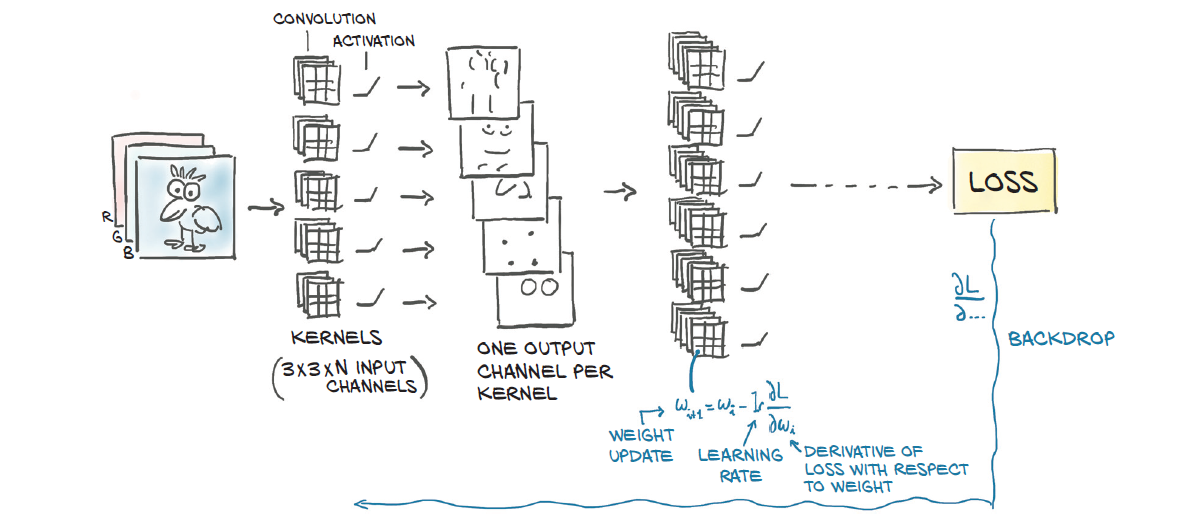 CONVOLUTION
ACTIVATION
R
G
B
KERNELS
(3x3xN INPUT
CHANNELS)
ONE OUTPUT
CHANNEL PER
KERNEL
LOSS
∂L
∂...
BACKDROP
ω_{i+1} = ω_i - lr ∂L
∂ω_i
WEIGHT
UPDATE
LEARNING
RATE
DERIVATIVE OF
LOSS WITH RESPECT
TO WEIGHT